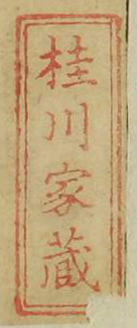 桂川家蔵